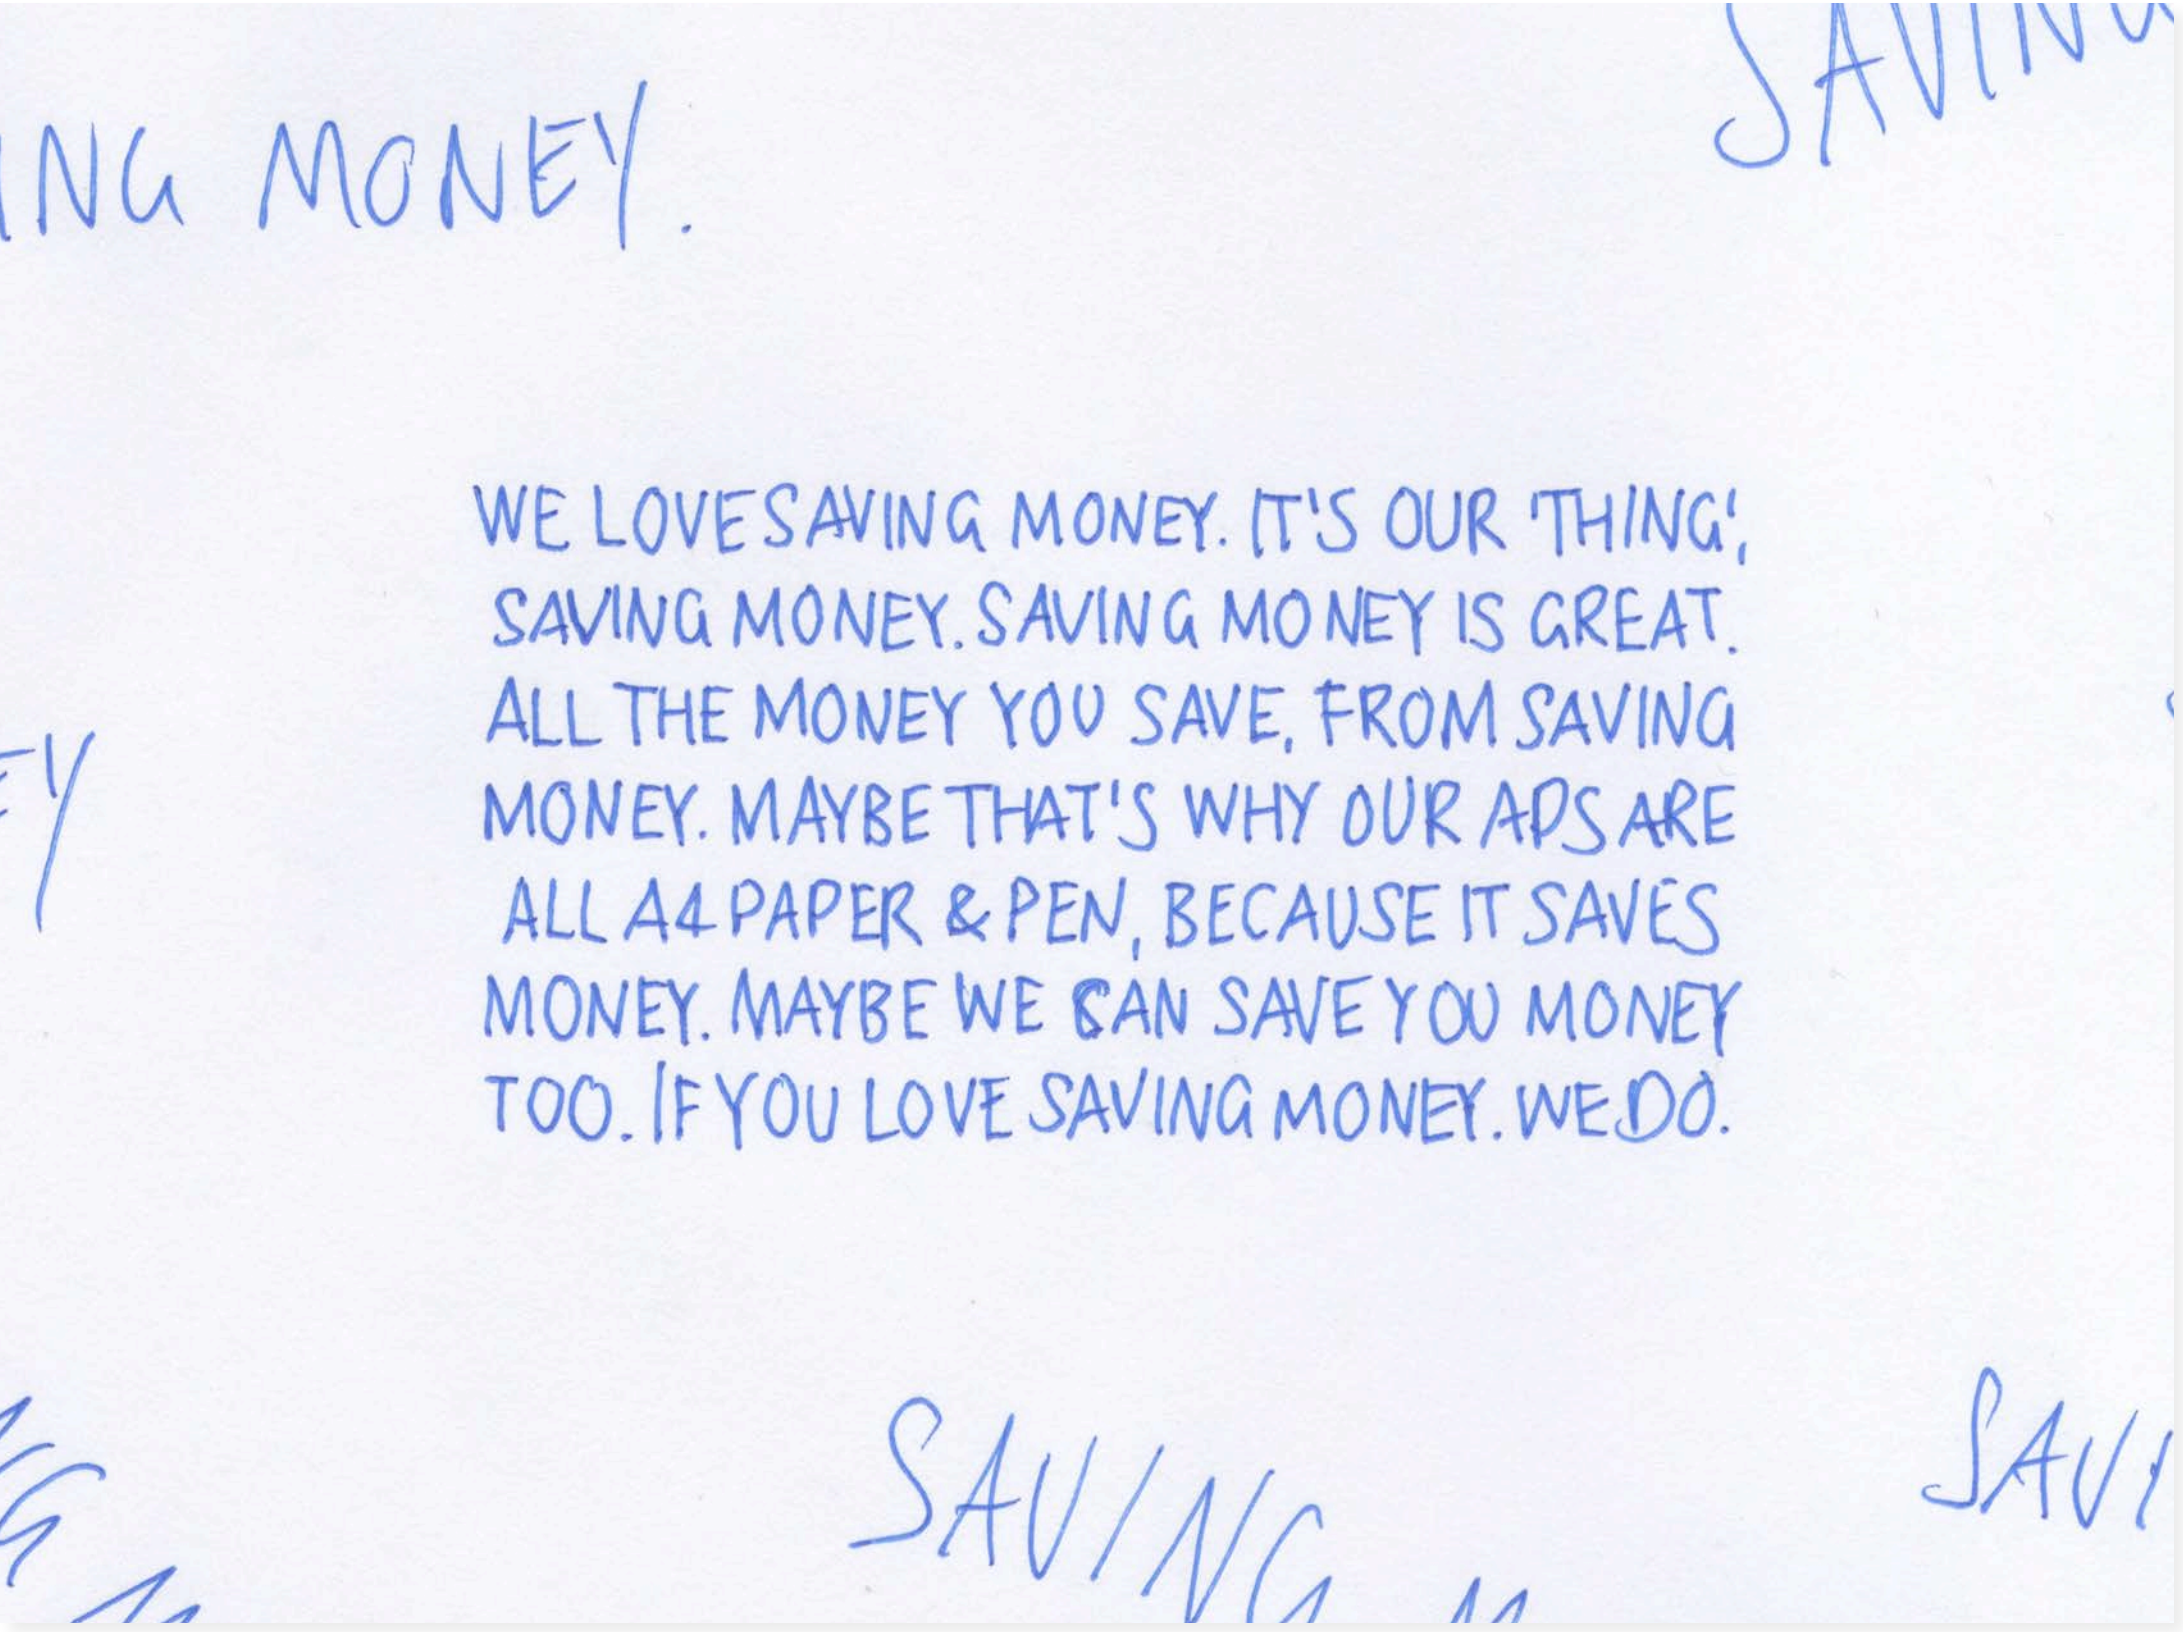 SAVING
ING MONEY.
WE LOVE SAVING MONEY. IT'S OUR 'THING',
SAVING MONEY. SAVING MONEY IS GREAT.
ALL THE MONEY YOU SAVE, FROM SAVING
MONEY. MAYBE THAT'S WHY OUR ADS ARE
ALL A4 PAPER & PEN, BECAUSE IT SAVES
MONEY. MAYBE WE CAN SAVE YOU MONEY
TOO. IF YOU LOVE SAVING MONEY. WE DO.
EY
SAVING M
SAVI